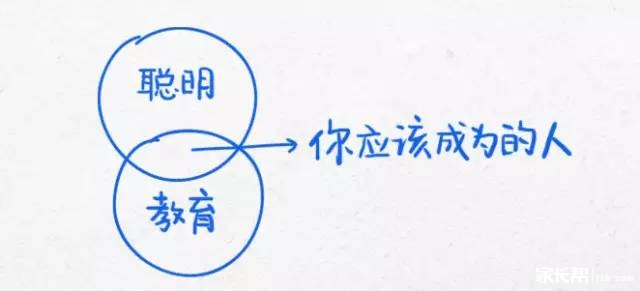 聪明
你应该成为的人
教育
家长帮 jzb.com